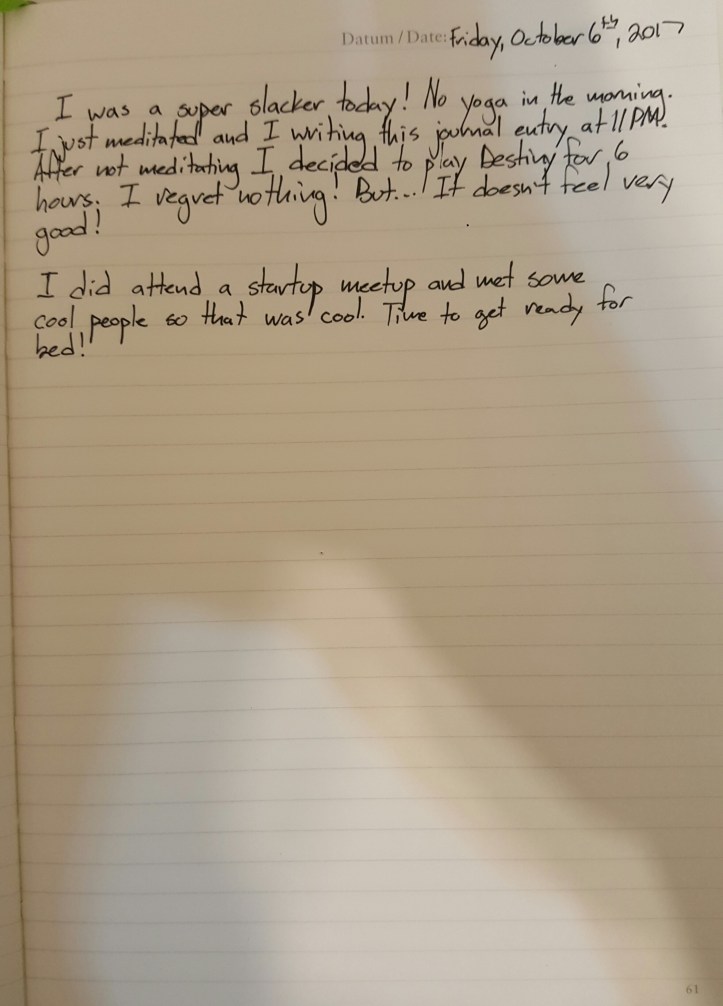 Datum / Date: Friday, October 6th, 2017
I was a super slacker today! No yoga in the morning.
I just meditated and I writing this journal entry at 11 PM.
After not meditating I decided to play Destiny for 6
hours. I regret nothing! But... It doesn't feel very
good!
I did attend a startup meetup and met some
cool people so that was cool. Time to get ready for
bed!
61